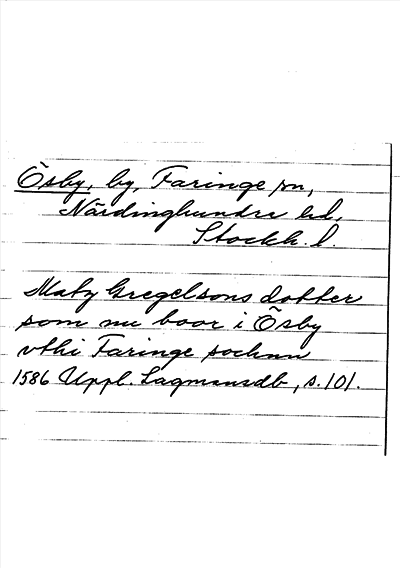 Ösby, by, Faringe sn,
Närdinghundra hd,
Stockh. l.
Maty Gregelsons dotter
som nu boor i Ösby
vthi Faringe sochnn
1586 Uppl. Lagmansdb, s. 101.